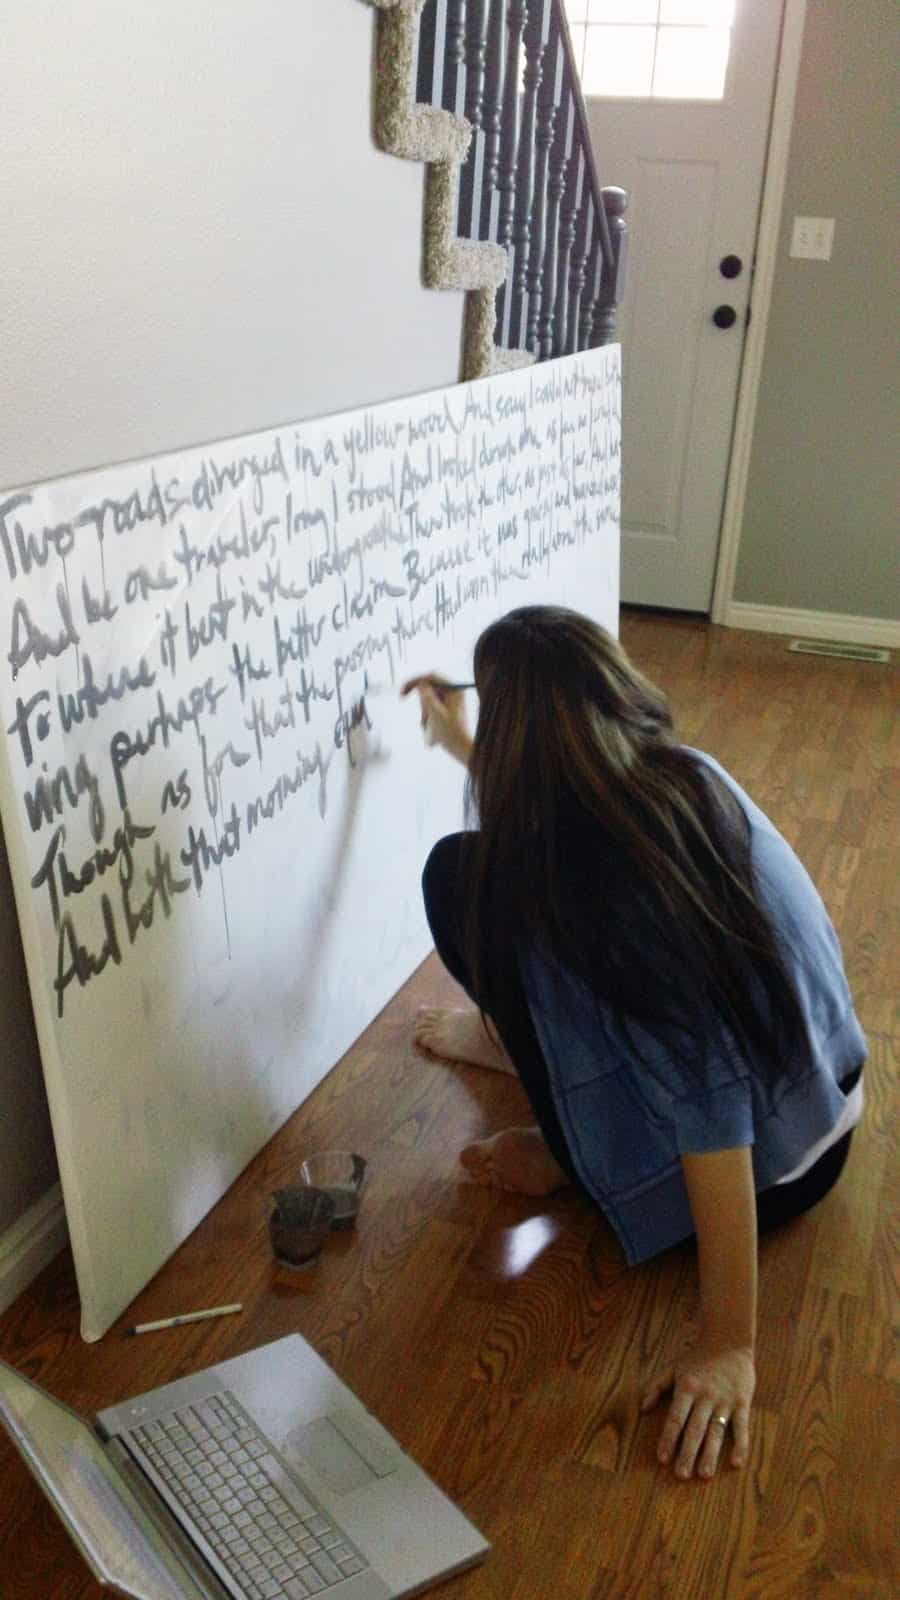 Two roads diverged in a yellow wood And sorry I could not travel both
And be one traveler, long I stood And looked down one as far as I could
to where it bent in the undergrowth Then took the other, as just as fair And ha
ving perhaps the better claim Because it was grassy and wanted wear
Though as for that the passing there Had worn them really about the same
And both that morning equ